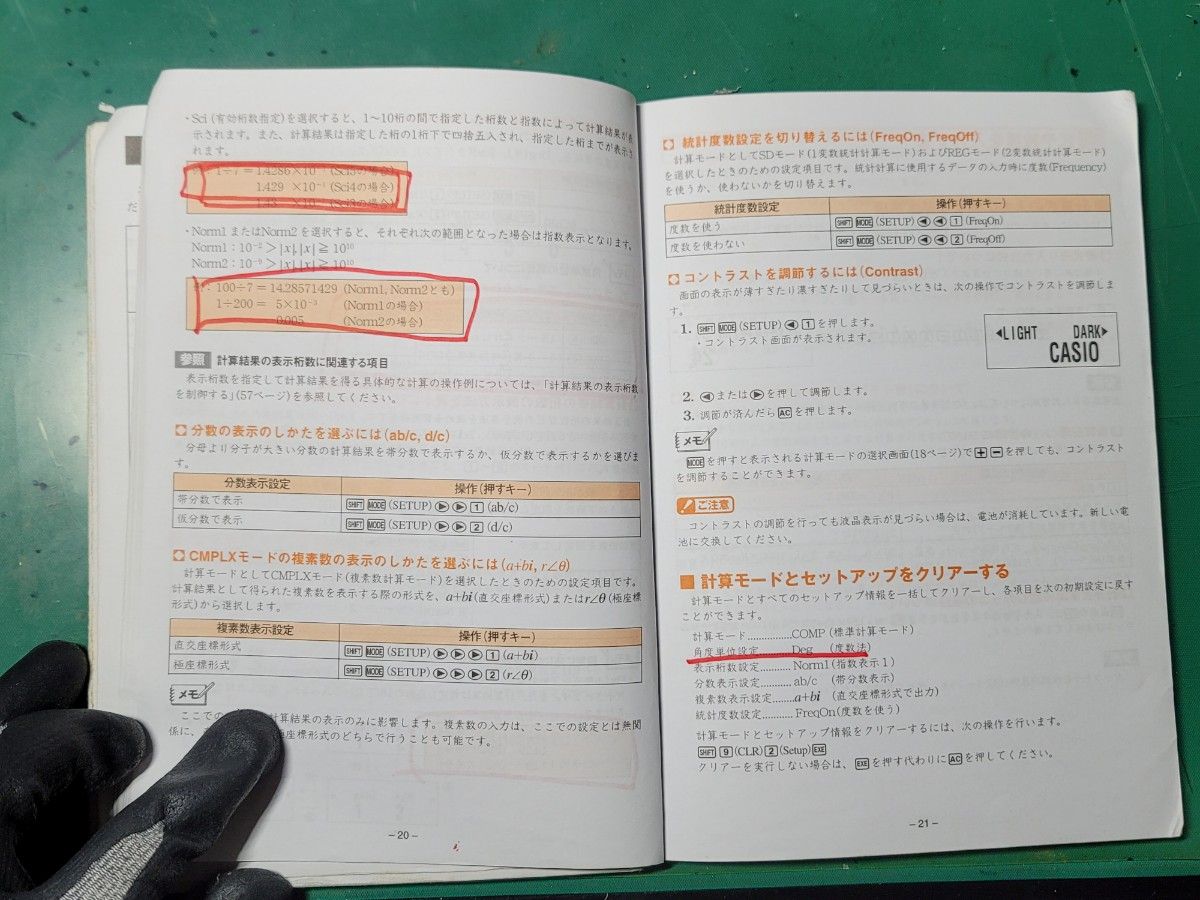 ・Sci (有効桁数指定)を選択すると、1～10桁の間で指定した桁数と指数によって計算結果が表
示されます。また、計算結果は指定した桁の1桁下で四捨五入され、指定した桁までが表示さ
れます。
1÷7＝1.4286×10⁻¹ (Sci5の場合)
1.429 ×10⁻¹ (Sci4の場合)
・Norm1 またはNorm2 を選択すると、それぞれ次の範囲となった場合は指数表示となります。
Norm1：10⁻²＞|x|, |x|≧10¹⁰
Norm2：10⁻⁹＞|x|, |x|≧10¹⁰
100÷7＝14.28571429 (Norm1, Norm2とも)
1÷200＝ 5×10⁻³ (Norm1の場合)
0.005 (Norm2の場合)
参照 計算結果の表示桁数に関連する項目
表示桁数を指定して計算結果を得る具体的な計算の操作例については、「計算結果の表示桁数
を制御する」(57ページ)を参照してください。
分数の表示のしかたを選ぶには(ab/c, d/c)
分母より分子が大きい分数の計算結果を帯分数で表示するか、仮分数で表示するかを選びま
す。
分数表示設定 操作(押すキー)
帯分数で表示 SHIFT MODE (SETUP) ▶ ▶ 1 (ab/c)
仮分数で表示 SHIFT MODE (SETUP) ▶ ▶ 2 (d/c)
CMPLXモードの複素数の表示のしかたを選ぶには(a+bi, r∠θ)
計算モードとしてCMPLXモード(複素数計算モード)を選択したときのための設定項目です。
計算結果として得られた複素数を表示する際の形式を、a+bi(直交座標形式)またはr∠θ(極座標
形式)から選択します。
複素数表示設定 操作(押すキー)
直交座標形式 SHIFT MODE (SETUP) ▶ ▶ ▶ 1 (a+bi)
極座標形式 SHIFT MODE (SETUP) ▶ ▶ ▶ 2 (r∠θ)
メモ
ここでの 計算結果の表示のみに影響します。複素数の入力は、ここでの設定とは無関
係に、 座標形式のどちらで行うことも可能です。
－20－
統計度数設定を切り替えるには(FreqOn, FreqOff)
計算モードとしてSDモード(1変数統計計算モード)およびREGモード(2変数統計計算モード)
を選択したときのための設定項目です。統計計算に使用するデータの入力時に度数(Frequency)
を使うか、使わないかを切り替えます。
統計度数設定 操作(押すキー)
度数を使う SHIFT MODE (SETUP) ◀ ◀ 1 (FreqOn)
度数を使わない SHIFT MODE (SETUP) ◀ ◀ 2 (FreqOff)
コントラストを調節するには(Contrast)
画面の表示が薄すぎたり濃すぎたりして見づらいときは、次の操作でコントラストを調節しま
す。
1. SHIFT MODE (SETUP) ◀ 1 を押します。
・コントラスト画面が表示されます。
◀LIGHT DARK▶
CASIO
2. ◀または▶を押して調節します。
3. 調節が済んだら AC を押します。
メモ
MODE を押すと表示される計算モードの選択画面(18ページ)で + − を押しても、コントラスト
を調節することができます。
ご注意
コントラストの調節を行っても液晶表示が見づらい場合は、電池が消耗しています。新しい電
池に交換してください。
■ 計算モードとセットアップをクリアーする
計算モードとすべてのセットアップ情報を一括してクリアーし、各項目を次の初期設定に戻す
ことができます。
計算モード...............COMP (標準計算モード)
角度単位設定..........Deg (度数法)
表示桁数設定..........Norm1(指数表示1)
分数表示設定..........ab/c (帯分数表示)
複素数表示設定.......a+bi (直交座標形式で出力)
統計度数設定..........FreqOn(度数を使う)
計算モードとセットアップ情報をクリアーするには、次の操作を行います。
SHIFT 9 (CLR) 2 (Setup) EXE
クリアーを実行しない場合は、EXE を押す代わりに AC を押してください。
－21－